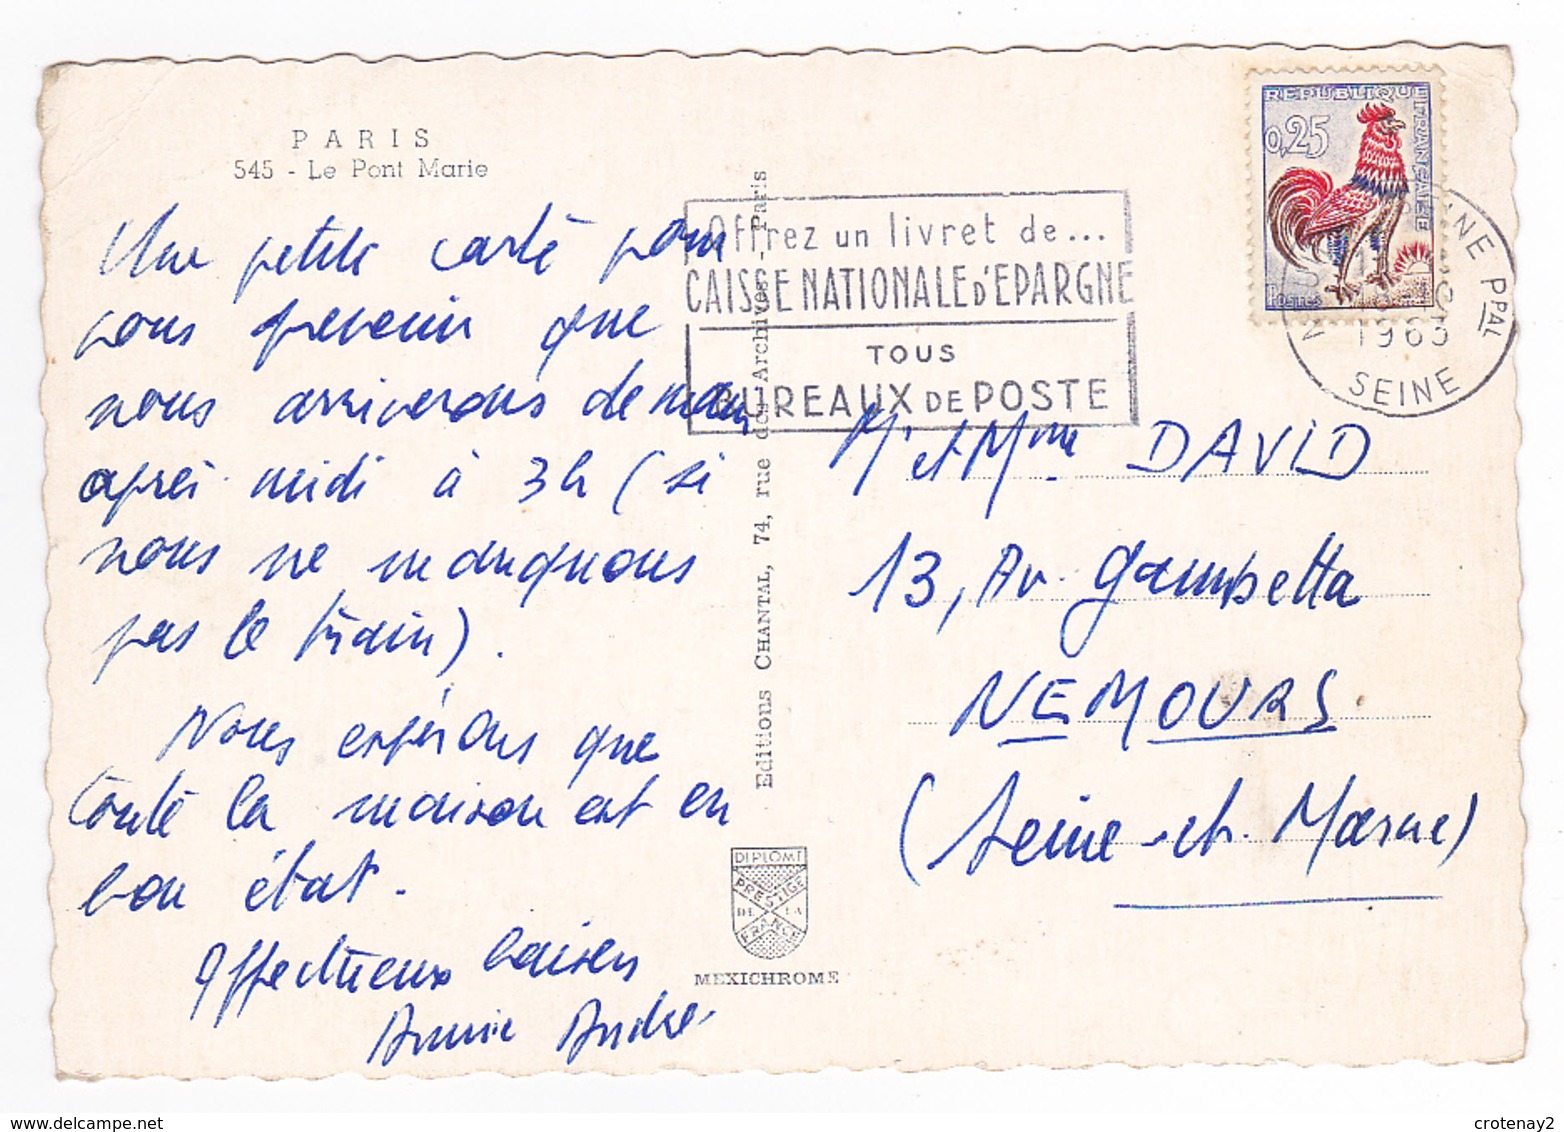 PARIS
545 - Le Pont Marie
Une petite carte pour
vous prevenir que
nous arriverons demain
après-midi à 3h (si
nous ne manquons
pas le train).
Nous espérons que
toute la maison est en
bon état.
Affectueux baisers
Annie André
Editions CHANTAL, 74, rue des Archives - Paris
DIPLOME
PRESTIGE
DE LA
FRANCE
MEXICHROME
Offrez un livret de...
CAISSE NATIONALE D'EPARGNE
TOUS
BUREAUX DE POSTE
REPUBLIQUE FRANÇAISE
0,25
POSTES
SEINE PPAL
1963
SEINE
Mr et Mme DAVID
13, Av. Gambetta
NEMOURS
(Seine-et-Marne)
crotenay2